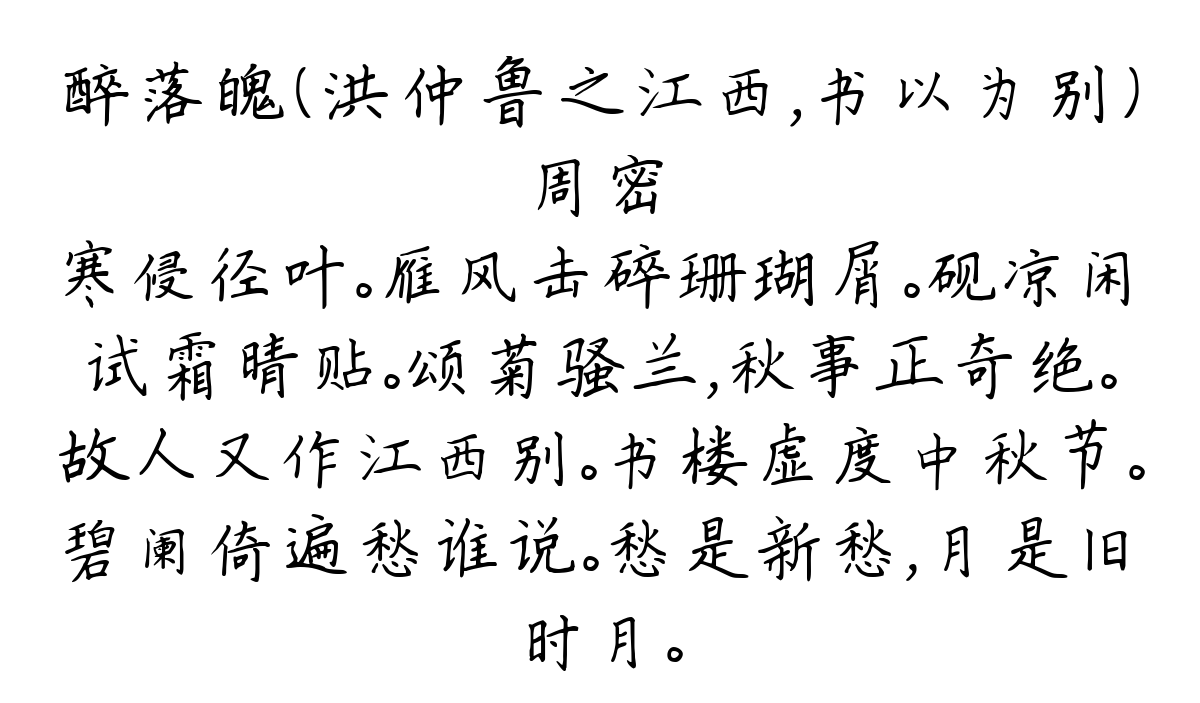 醉落魄(洪仲鲁之江西,书以为别)
周密
寒侵径叶。雁风击碎珊瑚屑。砚凉闲
试霜晴贴。颂菊骚兰,秋事正奇绝。
故人又作江西别。书楼虚度中秋节。
碧阑倚遍愁谁说。愁是新愁,月是旧
时月。